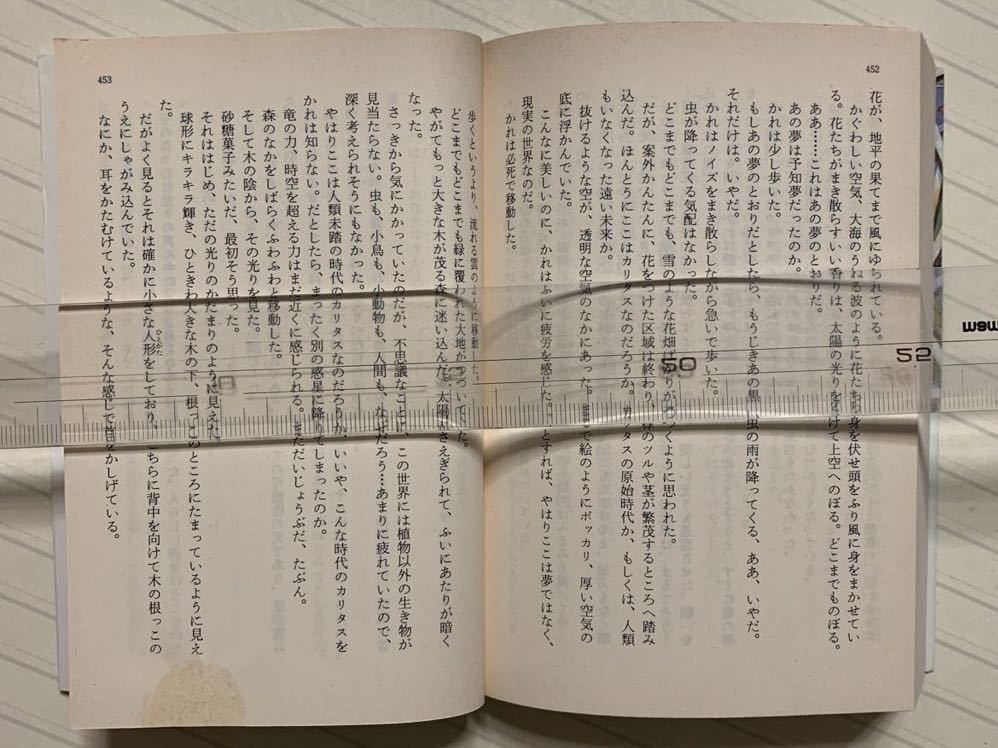 452
花が、地平の果てまで風にゆられている。
かぐわしい空気、大海のうねる波のように花たちも身を伏せ頭をふり風に身をまかせてい
る。花たちがまき散らすいい香りは、太陽の光りをうけて上空へのぼる。どこまでものぼる。
ああ……これはあの夢のとおりだ。
あの夢は予知夢だったのか。
かれは少し歩いた。
もしあの夢のとおりだとしたら、もうじきあの黒い虫の雨が降ってくる、ああ、いやだ。
それだけは。いやだ。
かれはノイズをまき散らしながら急いで歩いた。
虫が降ってくる気配はなかった。
どこまでもどこまでも、雪のような花畑ばかりがつづくように思われた。
だが、案外かんたんに、花をつけた区域は終わり、緑のツルや茎が繁茂するところへ踏み
込んだ。ほんとうにここはカリタスなのだろうか。カリタスの原始時代か、もしくは、人類
もいなくなった遠い未来か。
抜けるような空が、透明な空気のなかにあった。まるで絵のようにポッカリ、厚い空気の
底に浮かんでいた。
こんなに美しいのに、かれはふいに疲労を感じた。とすれば、やはりここは夢ではなく、
現実の世界なのだ。
かれは必死で移動した。
453
歩くというより、流れる雲のように移動した。
どこまでもどこまでも緑に覆われた大地がつづいていた。
やがてもっと大きな木が茂る森に迷い込んだ。太陽がさえぎられて、ふいにあたりが暗く
なった。
さっきから気にかかっていたのだが、不思議なことに、この世界には植物以外の生き物が
見当たらない。虫も、小鳥も、小動物も、人間も、なぜだろう…あまりに疲れていたので、
深く考えられそうにもなかった。
やはりここは人類未踏の時代のカリタスなのだろうか、いいや、こんな時代のカリタスを
かれは知らない。だとしたら、まったく別の惑星に降りてしまったのか。
竜の力、時空を超える力はまだ近くに感じられる。まだだいじょうぶだ、たぶん。
森のなかをしばらくふわふわと移動した。
そして木の陰から、その光りを見た。
砂糖菓子みたいだ、最初そう思った。
それははじめ、ただの光りのかたまりのように見えた
球形にキラキラ輝き、ひときわ大きな木の下、根っこのところにたまっているように見え
た。
だがよく見るとそれは確かに小さな人形ひとがたをしており、こちらに背中を向けて木の根っこの
うえにしゃがみ込んでいた。
なにか、耳をかたむけているような、そんな感じで首をかしげている。
50
52